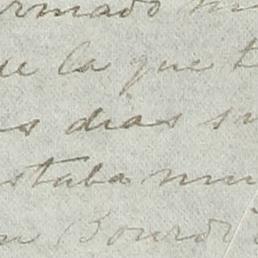 rmado
ue la que t
s dias su
staba mu
n Bourd